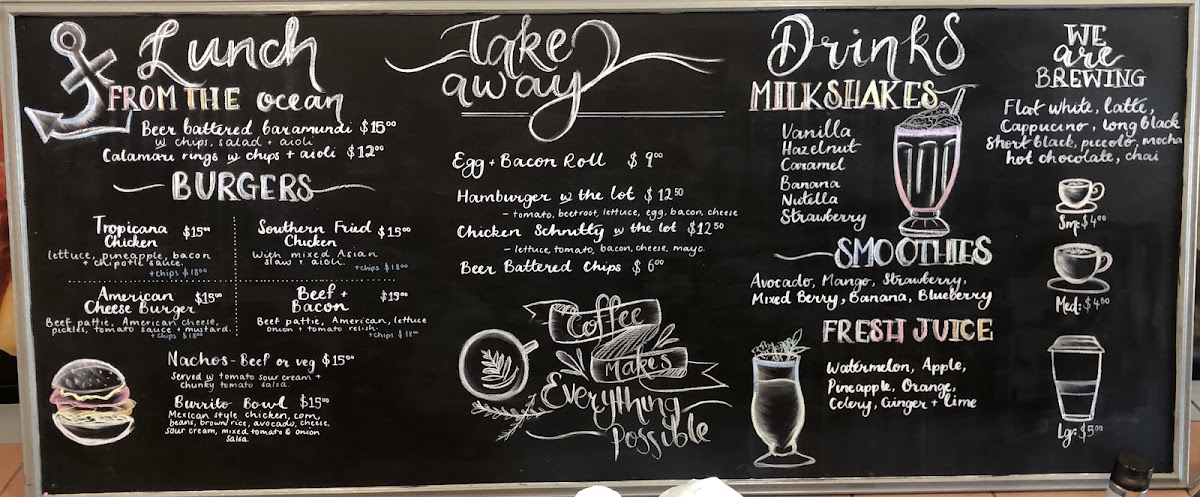 Lunch
FROM THE ocean
Beer battered baramundi $15⁰⁰
w chips, salad + aioli
Calamari rings w chips + aioli $12⁰⁰
BURGERS
Tropicana Chicken $15⁰⁰
lettuce, pineapple, bacon
+ chipotle sauce.
+chips $18⁰⁰
Southern Fried Chicken $15⁰⁰
With mixed Asian
slaw + aioli.
+chips $18⁰⁰
American Cheese Burger $15⁰⁰
Beef pattie, American cheese,
pickles, tomato sauce + mustard.
+chips $18⁰⁰
Beef + Bacon $15⁰⁰
Beef pattie, American, lettuce
onion + tomato relish.
+chips $18⁰⁰
Nachos - Beef or veg $15⁰⁰
Served w tomato sour cream +
chunky tomato salsa.
Burrito Bowl $15⁰⁰
Mexican style chicken, corn,
beans, brown rice, avocado, cheese,
sour cream, mixed tomato & onion
salsa.
Take
away
Egg + Bacon Roll $9⁰⁰
Hamburger w the lot $12⁵⁰
- tomato, beetroot, lettuce, egg, bacon, cheese
Chicken Schnitty w the lot $12⁵⁰
- lettuce, tomato, bacon, cheese, mayo.
Beer Battered Chips $6⁰⁰
Coffee
Makes
Everything
Possible
Drinks
MILKSHAKES
Vanilla
Hazelnut
Caramel
Banana
Nutella
Strawberry
SMOOTHIES
Avocado, Mango, Strawberry,
Mixed Berry, Banana, Blueberry
FRESH JUICE
Watermelon, Apple,
Pineapple, Orange,
Celery, Ginger + lime
WE
are
BREWING
Flat white, latte,
Cappucino, long black
short black, piccolo, mocha
hot chocolate, chai
Sm: $4⁰⁰
Med: $4.⁸⁰
Lg: $5⁰⁰